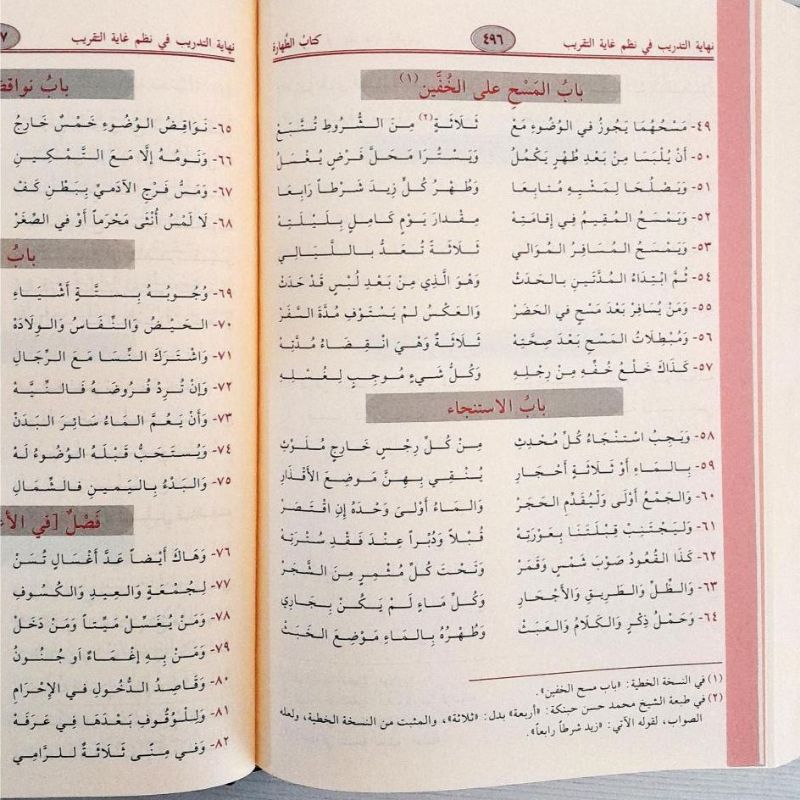 نهاية التدريب في نظم غاية التقريب ٤٩٦ كتابُ الطَّهارة
بابُ المَسْحِ على الخُفَّينِ(١)
٤٩- مَسْحُهُمَا يَجُوزُ في الوُضُوءِ مَعْ ثَلاثَةٍ(٢) مِنَ الشُّرُوطِ تُتَّبَعْ
٥٠- أَنْ يُلْبَسَا مِنْ بَعْدِ طُهْرٍ يَكْمُلُ وَيَسْتُرَا مَحَلَّ فَرْضٍ يُغْسَلُ
٥١- وَيَصْلُحَا لِمَشْيِهِ مُتابِعَا وَطُهْرُ كُلٍّ زِيدَ شَرْطاً رَابِعَا
٥٢- وَيَمْسَحُ المُقِيمُ فِي إِقَامَتِهْ مِقْدَارَ يَوْمٍ كَامِلٍ بِلَيْلَتِهْ
٥٣- وَيَمْسَحُ المُسَافِرُ المُوَالي ثَلاثَةً تُعَدُّ بِاللَّيَالِي
٥٤- ثُمَّ ابْتِدَاءُ المُدَّتَينِ بِالحَدَثْ وَهْوَ الَّذِي مِنْ بَعْدِ لُبْسٍ قَدْ حَدَثْ
٥٥- وَمَنْ يُسَافِرْ بَعْدَ مَسْحٍ في الحَضَرْ وَالعَكْسُ لَمْ يَسْتَوْفِ مُدَّةَ السَّفَرْ
٥٦- وَمُبْطِلَاتُ المَسْحِ بَعْدَ صِحَّتِهْ ثَلاثَةٌ وَهْيَ انْقِضَاءُ مُدَّتِهْ
٥٧- كَذَاكَ خَلْعُ خُفِّهِ مِنْ رِجْلِهِ وَكُلُّ شَيْءٍ مُوجِبٍ لِغُسْلِهِ
بابُ الاستنجاء
٥٨- وَيَجِبُ اسْتِنْجَاءُ كُلِّ مُحْدِثِ مِنْ كُلِّ رِجْسٍ خَارِجٍ مُلَوِّثِ
٥٩- بِالمَاءِ أَوْ ثَلاثَةِ أَحْجَارِ يُنْقِي بِهِنَّ مَوضِعَ الأَقْذَارِ
٦٠- وَالجَمْعُ أَوْلَى وَلْيُقَدَّمِ الحَجَرْ وَالمَاءُ أَوْلَى وَحْدَهُ إِنِ اقْتَصَرْ
٦١- وَلْيَجْتَنِبْ قِبْلَتَنَا بِعَوْرَتِهْ قُبْلاً وَدُبْراً عِنْدَ فَقْدِ سُتْرَتِهْ
٦٢- كَذَا القُعُودُ صَوْبَ شَمْسٍ وَقَمَرْ وَتَحْتَ كُلِّ مُثْمِرٍ مِنَ الشَّجَرْ
٦٣- وَالظِّلِّ وَالطَّرِيقِ وَالأَحْجَارِ وَكُلِّ مَاءٍ لَمْ يَكُنْ بِجَارِي
٦٤- وَحَمْلُ ذِكْرٍ وَالكَلَامُ وَالعَبَثْ وَطُهْرُهُ بِالمَاءِ مَوْضِعَ الخَبَثْ
(١) في النسخة الخطية: «باب مسح الخفين».
(٢) في طبعة الشيخ محمد حسن حبنكة: «أربعة» بدل: «ثلاثة»، والمثبت من النسخة الخطية، ولعله
الصواب، لقوله الآتي: «زيد شرطاً رابعاً».
نهاية التدريب في نظم غاية التقريب
بابُ
٦٥- نَوَاقِضُ الوُضُوءِ خَمْسٌ خَارِجُ
٦٦- وَنَومُهُ إِلَّا مَعَ التَّمْكِينِ
٦٧- وَمَسُّ فَرْجِ الآدَمِيِّ بِبَطْنِ كَفْ
٦٨- لَا لَمْسُ أُنْثَى مَحْرَماً أَوْ في الصِّغَرْ
بابُ
٦٩- وُجُوبُهُ بِسِتَّةٍ أَشْيَاءِ
٧٠- الحَيْضُ وَالنِّفَاسُ وَالوِلَادَهْ
٧١- وَاشْتَرَكَ النِّسَا مَعَ الرِّجَالِ
٧٢- وَإِنْ تُرِدْ فُرُوضَهُ فَالنِّيَّهْ
٧٣- وَأَنْ يَعُمَّ المَاءُ سَائِرَ البَدَنْ
٧٤- وَيُسْتَحَبُّ قَبْلَهُ الوُضُوءُ لَهْ
٧٥- وَالبَدْءُ بِاليَمِينِ فَالشِّمَالِ
فَصْلٌ [في
٧٦- وَهَاكَ أَيْضاً عَدَّ أَغْسَالٍ تُسَنْ
٧٧- لِجُمْعَةٍ وَالعِيدِ وَالكُسُوفِ
٧٨- وَمَنْ يُغَسِّلْ مَيِّتاً وَمَنْ دَخَلْ
٧٩- وَمَنْ بِهِ إِغْمَاءٌ اَو جُنُونُ
٨٠- وَقَاصِدُ الدُّخُولِ في الإِحْرَامِ
٨١- وَلِلْوُقُوفِ بَعْدَهَا فِي عَرَفَهْ
٨٢- وَفي مِنًى ثَلَاثَةٌ لِلرَّامِي